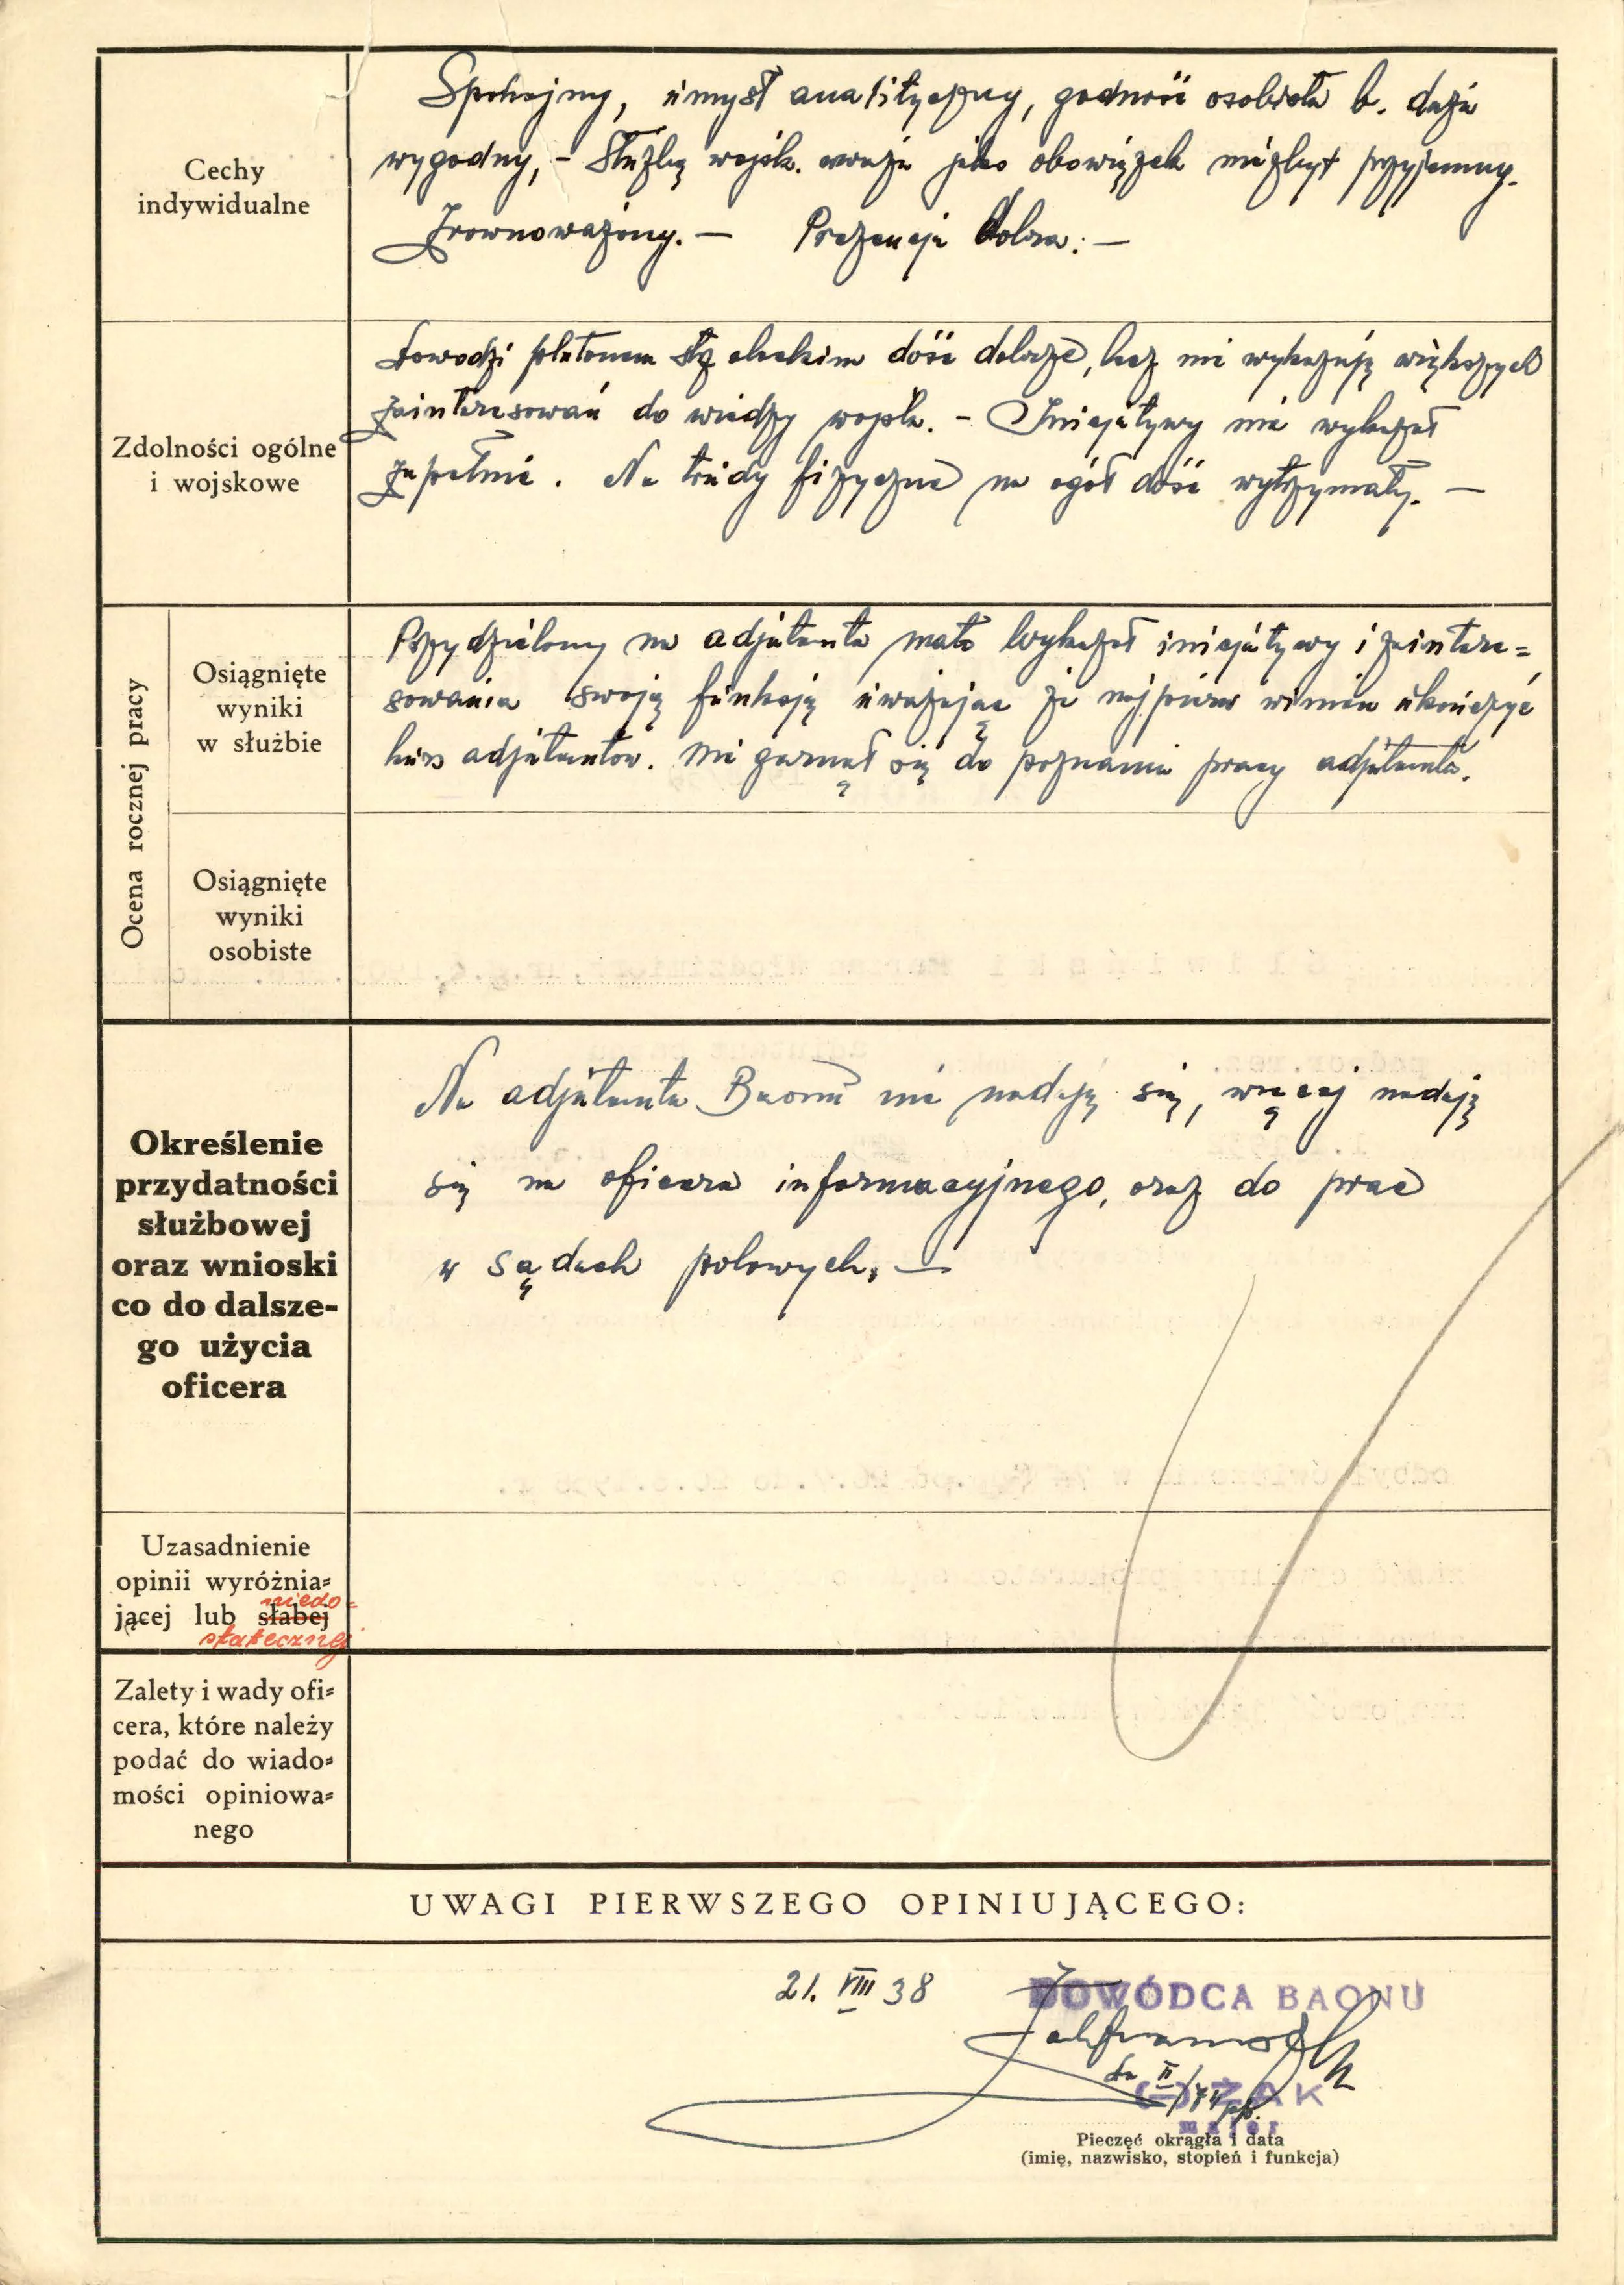 Cechy
indywidualne
Spokojny, umysł analityczny, godność osobista b. duża
wygodny, – Służbę wojsk. uważa jako obowiązek niezbyt przyjemny.
Zrownoważony. — Prezencja dobra. —
Zdolności ogólne
i wojskowe
Dowodzi plutonem dość dobrze, lecz nie wykazuję większych
zainteresowań do wiedzy wojsk. – Inicjatywy nie wykazał
zupełnie. Na trudy fizyczne na ogół dość wytrzymały. —
Ocena rocznej pracy
Osiągnięte
wyniki
w służbie
Przydzielony na adjutanta mało wykazał inicjatywy i zaintere=
sowania swoją funkcją uważając że najpierw winien ukończyć
kurs adjutantów. Nie garnął się do poznania pracy adjutanta.
Osiągnięte
wyniki
osobiste
Określenie
przydatności
służbowej
oraz wnioski
co do dalsze-
go użycia
oficera
Na adjutanta Baonu nie nadaję się, więcej nadaję
się na oficera informacyjnego, oraz do prac
w sądach polowych. —
Uzasadnienie
opinii wyróżnia=
jącej lub słabej niedo=
statecznej
Zalety i wady ofi=
cera, które należy
podać do wiado=
mości opiniowa=
nego
UWAGI PIERWSZEGO OPINIUJĄCEGO:
21. VIII 38
DOWÓDCA BAONU
II/74 pp.
(–) ŻAK
major
Pieczęć okrągła i data
(imię, nazwisko, stopień i funkcja)